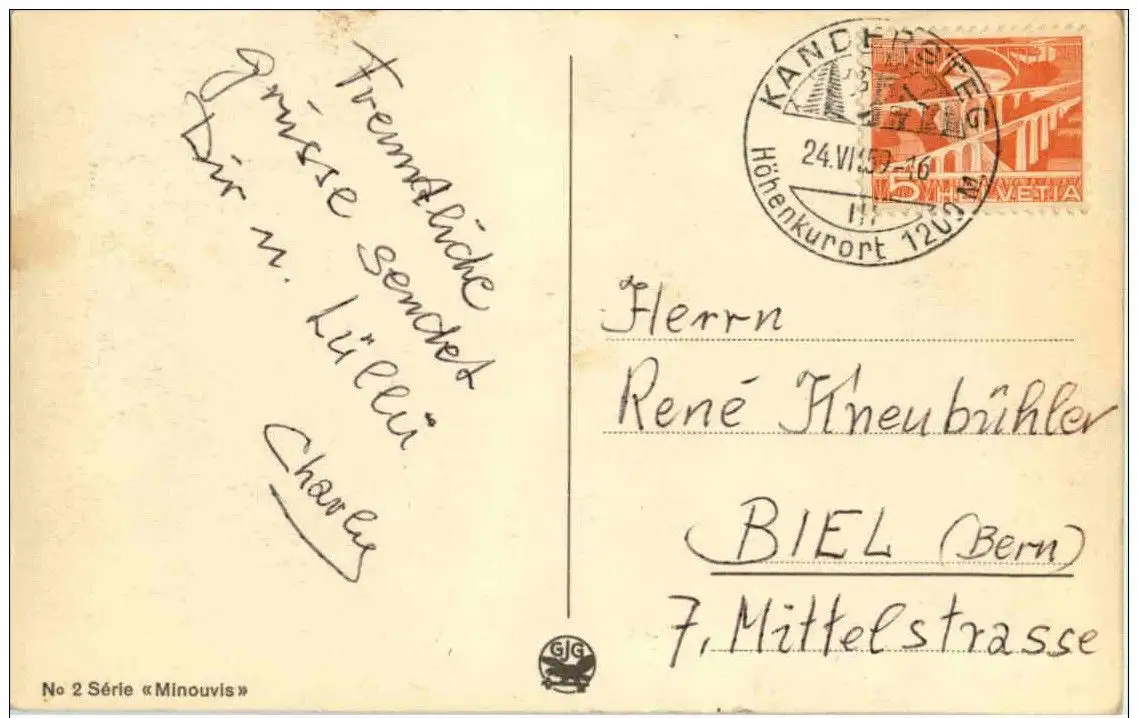 Freundliche
Grüsse sendet
Dir u. Lülli
Charley
KANDERSTEG
24.VII.59-16
Höhenkurort 1200 M
5 HELVETIA
Herrn
René Kneubühler
BIEL (Bern)
7, Mittelstrasse
GJG
No 2 Série «Minouvis»